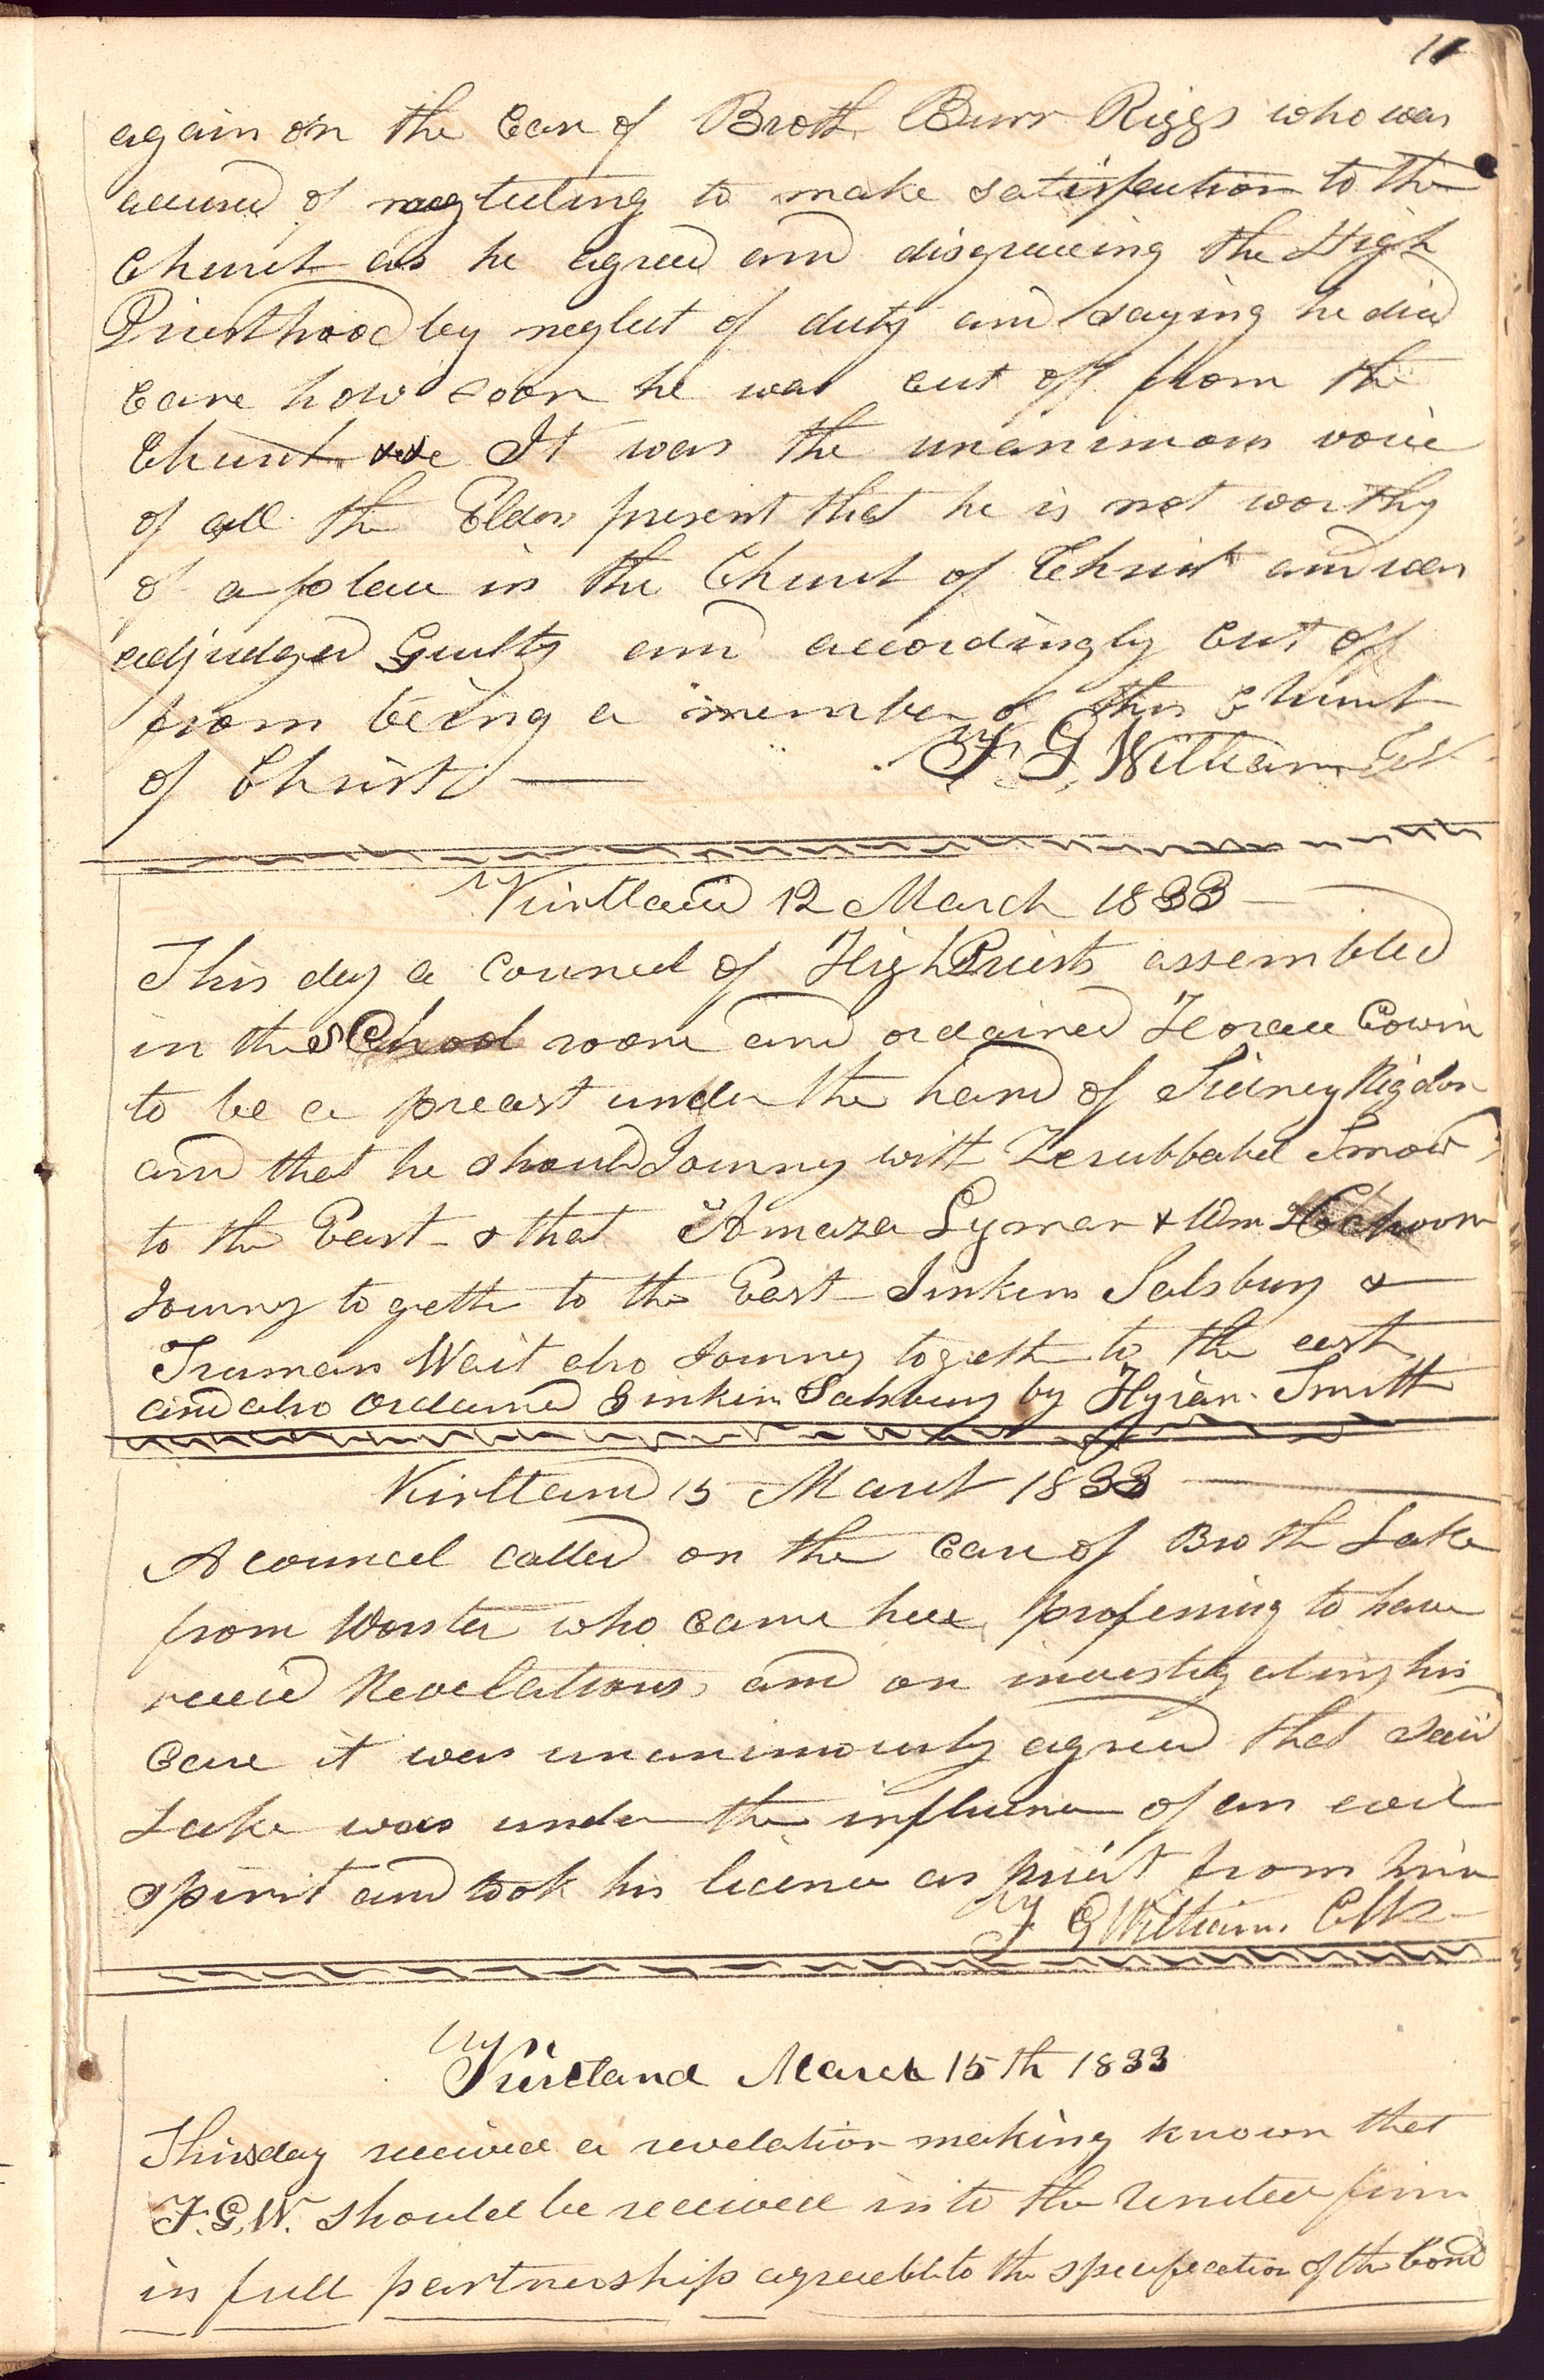 11
again on the Case of Broth Burr Riggs who was
accused of neglecting to make satisfaction to the
Church as he agreed and disgraceing the High
Priesthood by neglect of duty and saying he did
care how soon he was cut off from the
Church It was the unanimous voice
of all the Elders present that he is not worthy
of a place in the Church of Christ and was
adjudged Guilty and accordingly cut off
from being a member of this Church
of Christ
F G Williams
Kirtland 12 March 1833
This day a councel of High Priests assembled
in the School room and ordained Horace Cowin
to be a preast under the hand of Sidney Rigdon
and that he should Journy with Zerubbabel Snow
to the East & that Amaza Lyman & Wm
Journy togeth to the East Jinkins Salsbury &
Truman Wait also Journy togeth to the east
and also Ordained Jinkins Salsbury by Hyram Smith
Kirtland 15 March 1833
A councel called on the Case of Broth Lake
from Worster who came here professing to have
receied Revelations and on investigating his
Case it was unanimously agreed that said
Lake was under the influence of an evil
spirit and took his licence as priest from him
F G Williams Clk
Kirtland March 15th 1833
This day received a revelation making known that
F. G. W. should be received into the United firm
in full partnership agreeable to the specification of the bond